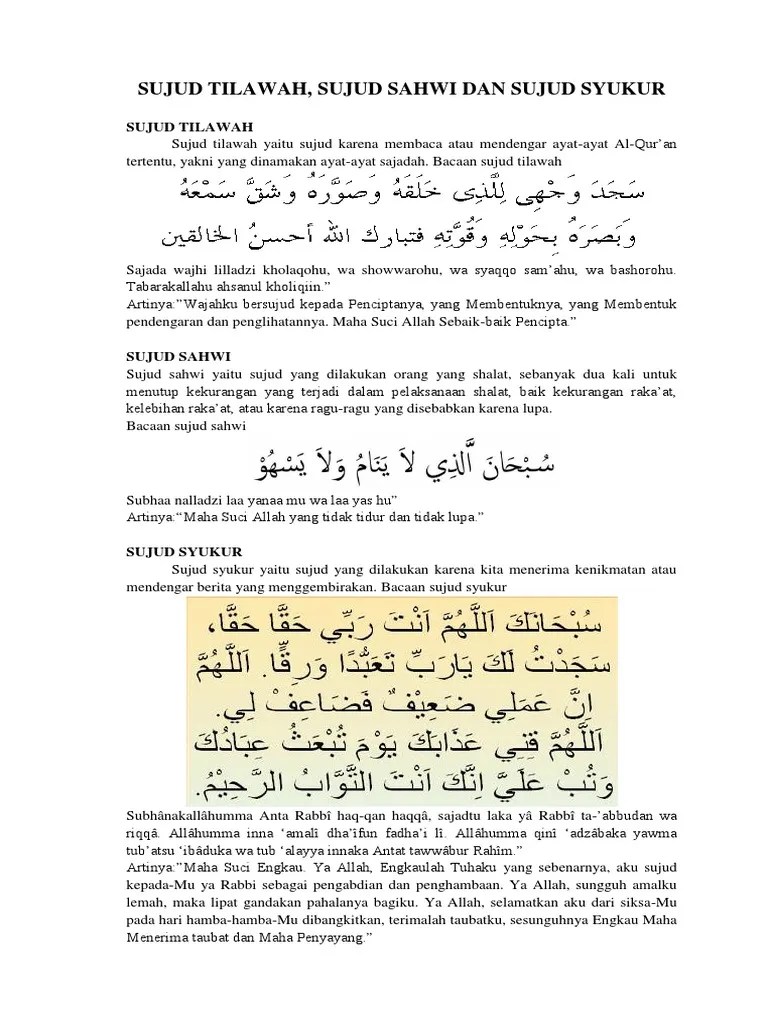 SUJUD TILAWAH, SUJUD SAHWI DAN SUJUD SYUKUR
SUJUD TILAWAH
Sujud tilawah yaitu sujud karena membaca atau mendengar ayat-ayat Al-Qur’an
tertentu, yakni yang dinamakan ayat-ayat sajadah. Bacaan sujud tilawah
سَجَدَ وَجْهِى لِلَّذِى خَلَقَهُ وَصَوَّرَهُ وَشَقَّ سَمْعَهُ
وَبَصَرَهُ بِحَوْلِهِ وَقُوَّتِهِ فتبارك الله أحسنُ الخالقين
Sajada wajhi lilladzi kholaqohu, wa showwarohu, wa syaqqo sam’ahu, wa bashorohu.
Tabarakallahu ahsanul kholiqiin.”
Artinya:”Wajahku bersujud kepada Penciptanya, yang Membentuknya, yang Membentuk
pendengaran dan penglihatannya. Maha Suci Allah Sebaik-baik Pencipta.”
SUJUD SAHWI
Sujud sahwi yaitu sujud yang dilakukan orang yang shalat, sebanyak dua kali untuk
menutup kekurangan yang terjadi dalam pelaksanaan shalat, baik kekurangan raka’at,
kelebihan raka’at, atau karena ragu-ragu yang disebabkan karena lupa.
Bacaan sujud sahwi
سُبْحَانَ الَّذِي لاَ يَنَامُ وَلاَ يَسْهُوْ
Subhaa nalladzi laa yanaa mu wa laa yas hu”
Artinya:“Maha Suci Allah yang tidak tidur dan tidak lupa.”
SUJUD SYUKUR
Sujud syukur yaitu sujud yang dilakukan karena kita menerima kenikmatan atau
mendengar berita yang menggembirakan. Bacaan sujud syukur
سُبْحَانَكَ اَللَّهُمَّ اَنْتَ رَبِّي حَقًّا حَقًّا،
سَجَدْتُ لَكَ يَارَبِّ تَعَبُّدًا وَرِقًّا. اَللَّهُمَّ
اِنَّ عَمَلِي ضَعِيْفٌ فَضَاعِفْ لِي.
اَللَّهُمَّ قِنِي عَذَابَكَ يَوْمَ تُبْعَثُ عِبَادُكَ
وَتُبْ عَلَيَّ اِنَّكَ اَنْتَ التَّوَّابُ الرَّحِيْمُ.
Subhânakallâhumma Anta Rabbî haq-qan haqqâ, sajadtu laka yâ Rabbî ta-’abbudan wa
riqqâ. Allâhumma inna ‘amalî dha’îfun fadha’i lî. Allâhumma qinî ‘adzâbaka yawma
tub’atsu ‘ibâduka wa tub ‘alayya innaka Antat tawwâbur Rahîm.”
Artinya:”Maha Suci Engkau. Ya Allah, Engkaulah Tuhaku yang sebenarnya, aku sujud
kepada-Mu ya Rabbi sebagai pengabdian dan penghambaan. Ya Allah, sungguh amalku
lemah, maka lipat gandakan pahalanya bagiku. Ya Allah, selamatkan aku dari siksa-Mu
pada hari hamba-hamba-Mu dibangkitkan, terimalah taubatku, sesunguhnya Engkau Maha
Menerima taubat dan Maha Penyayang.”